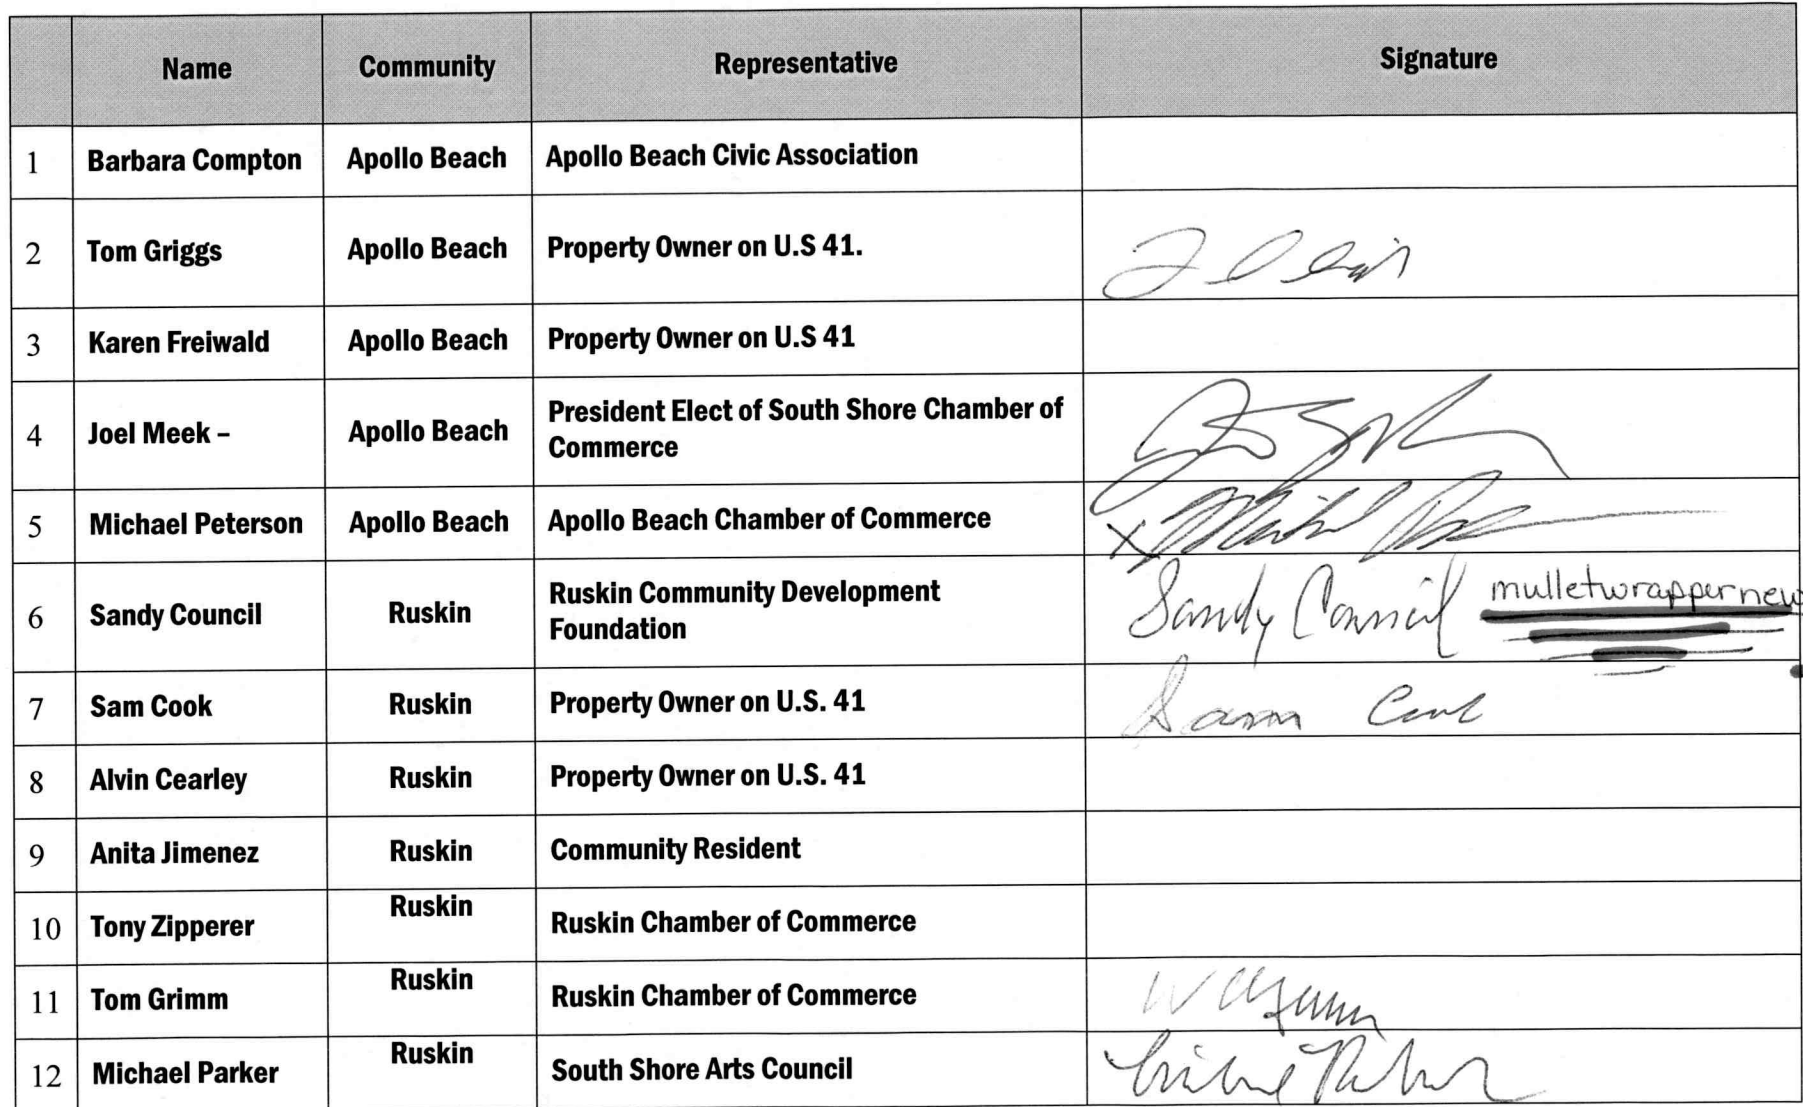 Name Community Representative Signature
1 Barbara Compton Apollo Beach Apollo Beach Civic Association
2 Tom Griggs Apollo Beach Property Owner on U.S 41.
3 Karen Freiwald Apollo Beach Property Owner on U.S 41
4 Joel Meek – Apollo Beach President Elect of South Shore Chamber of
Commerce
5 Michael Peterson Apollo Beach Apollo Beach Chamber of Commerce X
6 Sandy Council Ruskin Ruskin Community Development
Foundation Sandy Council mulletwrappernew
7 Sam Cook Ruskin Property Owner on U.S. 41 Sam Cook
8 Alvin Cearley Ruskin Property Owner on U.S. 41
9 Anita Jimenez Ruskin Community Resident
10 Tony Zipperer Ruskin Ruskin Chamber of Commerce
11 Tom Grimm Ruskin Ruskin Chamber of Commerce
12 Michael Parker Ruskin South Shore Arts Council